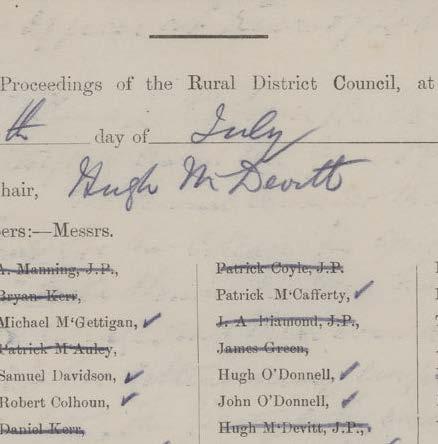 Proceedings of the Rural District Council, at
th day of July
hair, Hugh McDevitt
ers:—Messrs.
A. Manning, J.P.,
Bryan Kerr,
Michael M‘Gettigan,
Patrick M‘Auley,
Samuel Davidson,
Robert Colhoun,
Daniel Kerr,
Patrick Coyle, J.P.
Patrick M‘Cafferty,
J. A Diamond, J.P.,
James Green,
Hugh O’Donnell,
John O’Donnell,
Hugh M‘Devitt, J.P.,